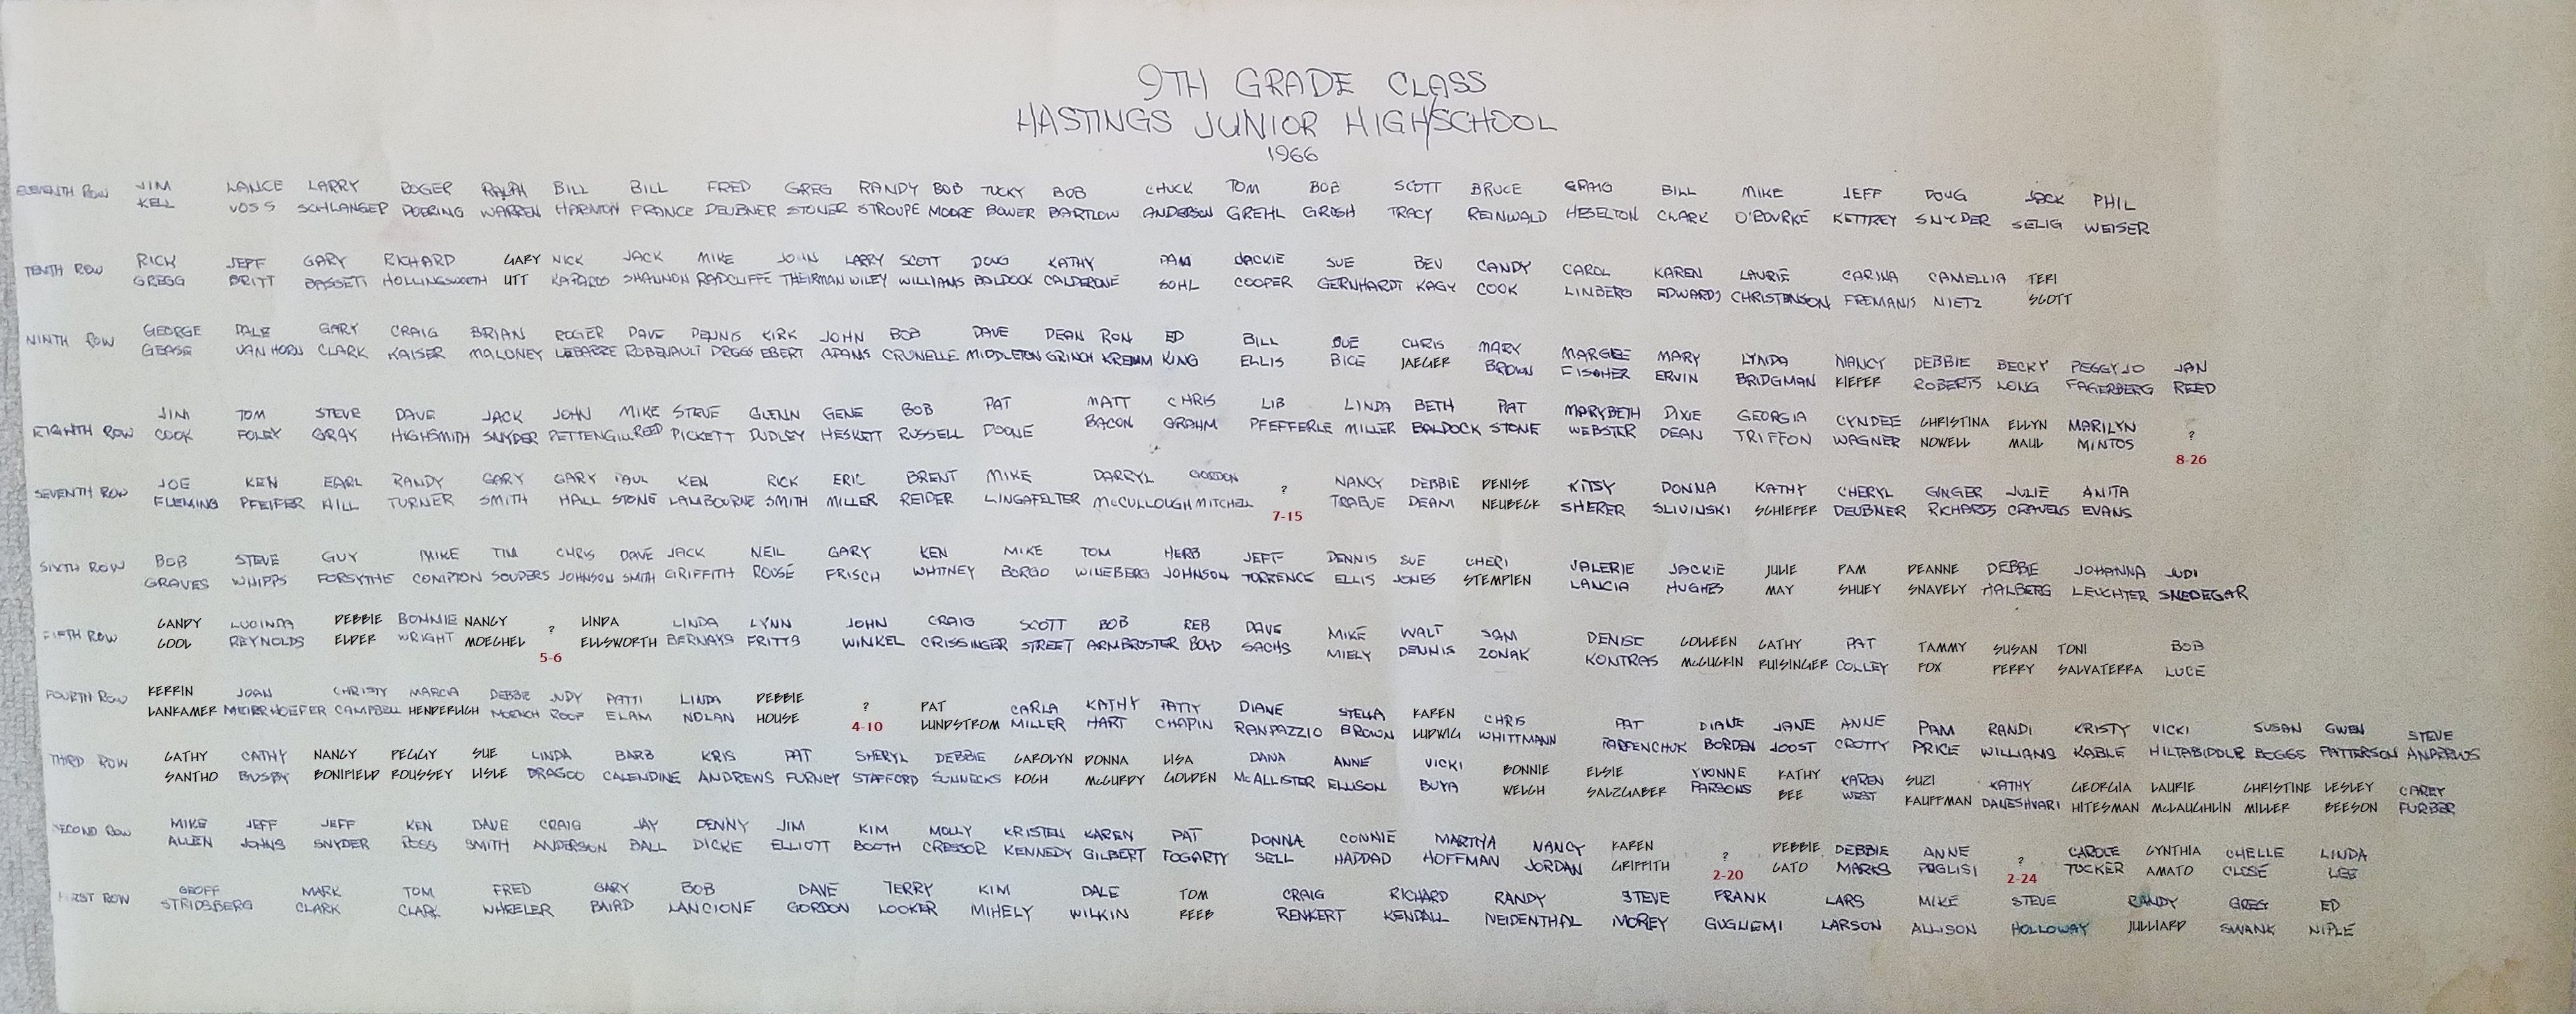 9TH GRADE CLASS
HASTINGS JUNIOR HIGH/SCHOOL
1966
ELEVENTH ROW JIM LANCE LARRY ROGER RALPH BILL BILL FRED GREG RANDY BOB TUCKY BOB CHUCK TOM BOB SCOTT BRUCE CRAIG BILL MIKE JEFF DOUG JACK PHIL
KELL VOSS SCHLANGER DOERING WARREN HARNTON FRANCE DEUBNER STONER STROUPE MOORE BOWER BARTLOW ANDERSON GREHL GROSH TRACY REINWALD HESELTON CLARK O'ROURKE KETTREY SNYDER SELIG WEISER
TENTH ROW RICK JEFF GARY RICHARD GARY NICK JACK MIKE JOHN LARRY SCOTT DOUG KATHY PAM JACKIE SUE BEV CANDY CAROL KAREN LAURIE CARINA CAMELLIA TERI
GREGG BRITT BASSETT HOLLINGSWORTH UTT KAPAROS SHANNON RADCLIFFE THEIRMAN WILEY WILLIAMS BALDOCK CALDERONE SOHL COOPER GERNHARDT KAGY COOK LINBERG EDWARDS CHRISTENSON FREMANIS NIETZ SCOTT
NINTH ROW GEORGE DALE GARY CRAIG BRIAN ROGER DAVE DENNIS KIRK JOHN BOB DAVE DEAN RON ED BILL SUE CHRIS MARY MARGEE MARY LYNDA NANCY DEBBIE BECKY PEGGY JO JAN
GEASE VAN HORN CLARK KAISER MALONEY LEBARRE ROBENAULT DRGGS EBERT ADAMS CRUNELLE MIDDLETON GRINCH KREMM KING ELLIS BICE JAEGER BROWN FISCHER ERVIN BRIDGMAN KIEFER ROBERTS LONG FAGERBERG REED
EIGHTH ROW JIM TOM STEVE DAVE JACK JOHN MIKE STEVE GLENN GENE BOB PAT MATT CHRIS LIB LINDA BETH PAT MARYBETH DIXIE GEORGIA CYNDEE CHRISTINA ELLYN MARILYN ?
COOK FOLEY GRAY HIGHSMITH SNYDER PETTENGILL REED PICKETT DUDLEY HESKETT RUSSELL DOONE BACON GRAHM PFEFFERLE MILLER BALDOCK STONE WEBSTER DEAN TRIFFON WAGNER NOWELL MAUL MINTOS
8-26
SEVENTH ROW JOE KEN EARL RANDY GARY GARY PAUL KEN RICK ERIC BRENT MIKE DARRYL GORDON ? NANCY DEBBIE DENISE KITSY DONNA KATHY CHERYL GINGER JULIE ANITA
FLEMING PFEIFER HILL TURNER SMITH HALL STONE LAMBOURNE SMITH MILLER REIDER LINGAFELTER McCULLOUGH MITCHELL 7-15 TRABUE DEAM NEUBECK SHERER SLIVINSKI SCHIEFER DEUBNER RICHARDS CRAVENS EVANS
SIXTH ROW BOB STEVE GUY MIKE TIM CHRIS DAVE JACK NEIL GARY KEN MIKE TOM HERB JEFF DENNIS SUE CHERI VALERIE JACKIE JULIE PAM DEANNE DEBBIE JOHANNA JUDI
GRAVES WHIPPS FORSYTHE COMPTON SOUDERS JOHNSON SMITH GRIFFITH ROUSE FRISCH WHITNEY BORGO WINEBERG JOHNSON TORRENCE ELLIS JONES STEMPIEN LANCIA HUGHES MAY SHUEY SNAVELY HALBERG LEUCHTER SNEDEGAR
FIFTH ROW CANDY LUCINDA DEBBIE BONNIE NANCY ? LINDA LINDA LYNN JOHN CRAIG SCOTT BOB REB DAVE MIKE WALT SAM DENISE COLLEEN CATHY PAT TAMMY SUSAN TONI BOB
COOL REYNOLDS ELDER WRIGHT MOECHEL 5-6 ELLSWORTH BERNAYS FRITTS WINKEL CRISSINGER STREET ARMBRUSTER BOYD SACHS MIELY DENNIS ZONAK KONTRAS McGUCKIN RUISINGER COLLEY FOX PERRY SALVATERRA LUCE
FOURTH ROW KERRIN JOAN CHRISTY MARCIA DEBBIE JUDY PATTI LINDA DEBBIE ? PAT CARLA KATHY PATTY DIANE STELLA KAREN CHRIS PAT DIANE JANE ANNE PAM RANDI KRISTY VICKI SUSAN GWEN STEVE
LANKAMER MEIERHOEFER CAMPBELL HENDERLICH MOENCH ROOF ELAM NOLAN HOUSE 4-10 LUNDSTROM MILLER HART CHAPIN RANPAZZIO BROWN LUDWIG WHITTMANN PARFENCHUK BORDEN JOOST CROTTY PRICE WILLIAMS KABLE HILTABIDDLE BOGGS PATTERSON ANDREWS
THIRD ROW CATHY CATHY NANCY PEGGY SUE LINDA BARB KRIS PAT SHERYL DEBBIE CAROLYN DONNA LISA DANA ANNE VICKI BONNIE ELSIE YVONNE KATHY KAREN SUZI KATHY GEORGIA LAURIE CHRISTINE LESLEY CAREY
SANTHO BUSBY BONIFIELD ROUSSEY LISLE DRAGOO CALENDINE ANDREWS FURNEY STAFFORD SUNNECKS KOCH McCURDY GOLDEN McALLISTER ELLISON BUYA WELCH SALZGABER PARSONS BEE WEST KAUFFMAN DANESHVARI HITESMAN McLAUGHLIN MILLER BEESON FURBER
SECOND ROW MIKE JEFF JEFF KEN DAVE CRAIG JAY DENNY JIM KIM MOLLY KRISTEN KAREN PAT DONNA CONNIE MARTHA NANCY KAREN ? DEBBIE DEBBIE ANNE ? CAROLE CYNTHIA CHELLE LINDA
ALLEN JOHNS SNYDER ROSS SMITH ANDERSON BALL DICKE ELLIOTT BOOTH CRESSOR KENNEDY GILBERT FOGARTY SELL HADDAD HOFFMAN JORDAN GRIFFITH 2-20 CATO MARKS PUGLISI 2-24 TUCKER AMATO CLOSE LEE
FIRST ROW GEOFF MARK TOM FRED GARY BOB DAVE TERRY KIM DALE TOM CRAIG RICHARD RANDY STEVE FRANK LARS MIKE STEVE RANDY GREG ED
STRIDSBERG CLARK CLARK WHEELER BAIRD LANCIONE GORDON LOOKER MIHELY WILKIN REEB RENKERT KENDALL NEIDENTHAL MOREY GUGLIEMI LARSON ALLISON HOLLOWAY JULLIARD SWANK NIPLE